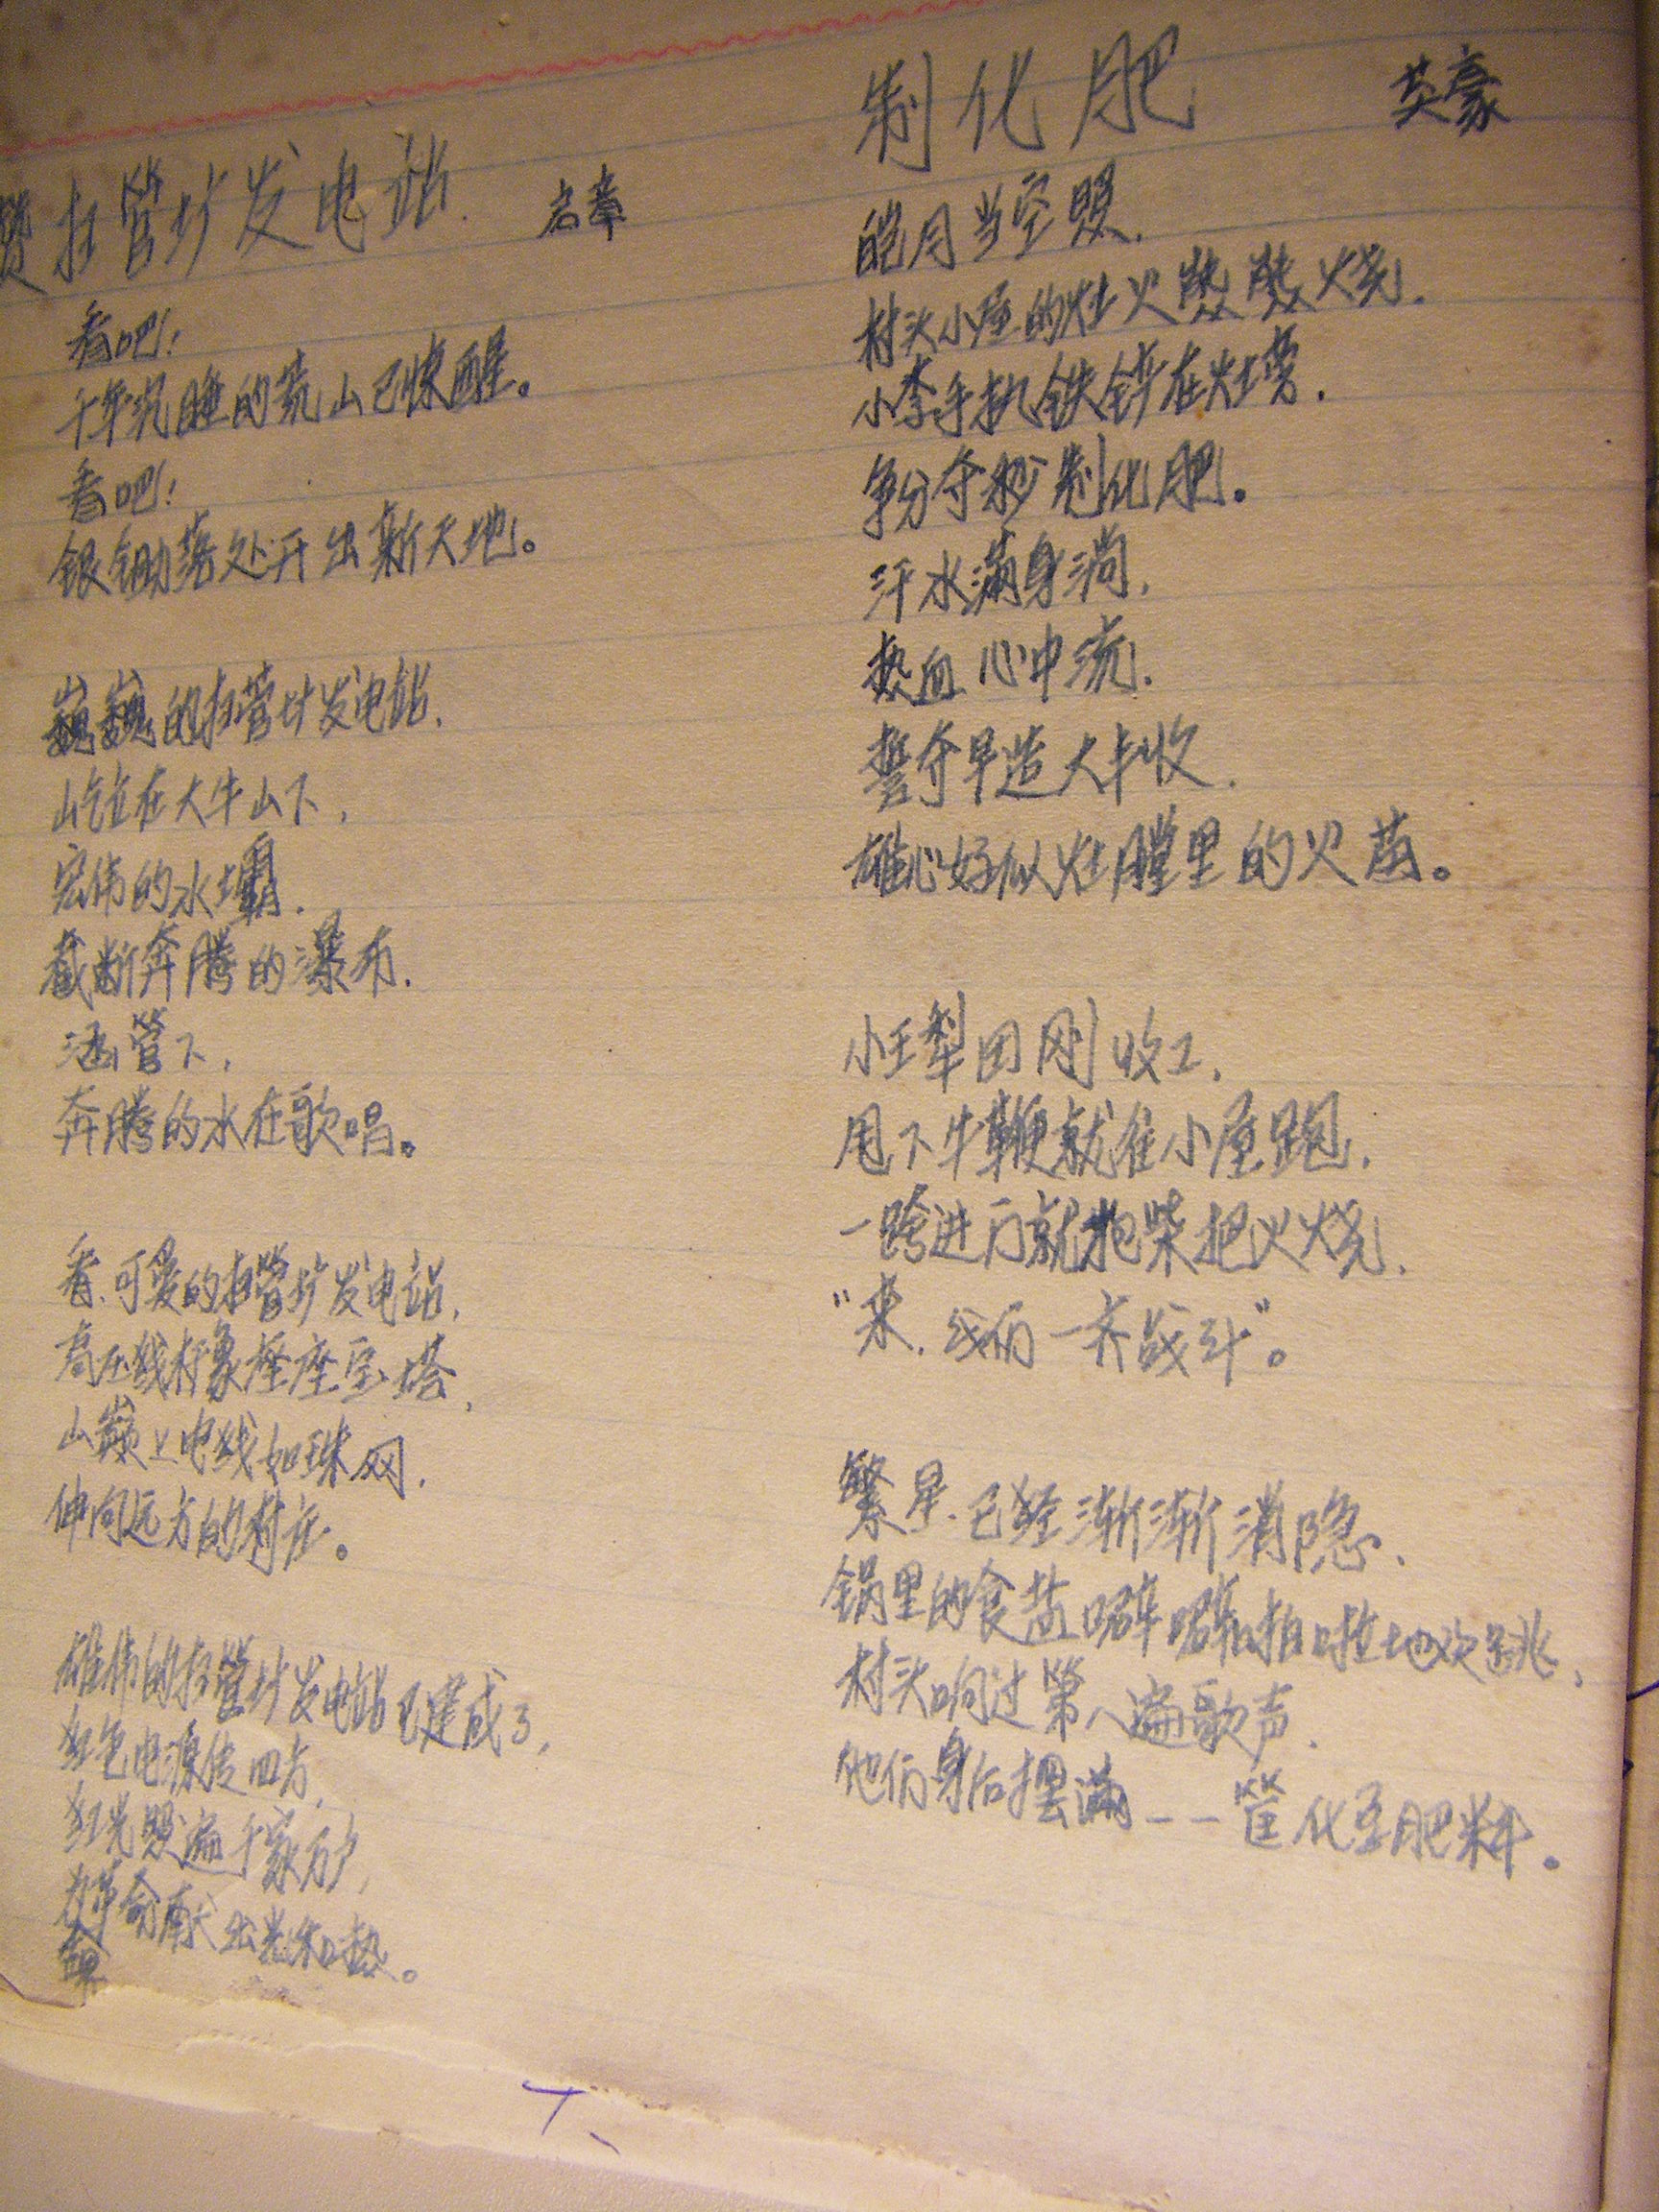 赞杠管圹发电站. 启章
看吧!
千年沉睡的荒山已惊醒。
看吧!
银锄落处开出新天地。
巍巍的杠管圹发电站.
屹立在大牛山下,
宏伟的水壩.
截断奔腾的瀑布.
涵管下,
奔腾的水在歌唱。
看.可爱的杠管圹发电站,
高压线杆象座座宝塔,
山巅上电线如珠网.
伸向远方的村庄。
雄伟的杠管圹发电站已建成了,
红色电源传四方,
红光照遍千家万户,
为革命献出光和热。
制化肥 英豪
皓月当空照.
村头小屋的灶火熊熊烧.
小李手执铁铲在灶旁.
争分夺秒制化肥。
汗水满身淌,
热血心中流.
誓夺早造大丰收.
雄心好似灶膛里的火苗。
小王犁田刚收工,
甩下牛鞭就往小屋跑.
一跨进门就抱柴把火烧.
"来.我们一齐战斗"。
繁星.已经渐渐消隐、
锅里的食盐噼噼啪啦地欢跳,
村头响过第八遍歌声.
他们身后摆满一一筐化至肥料。